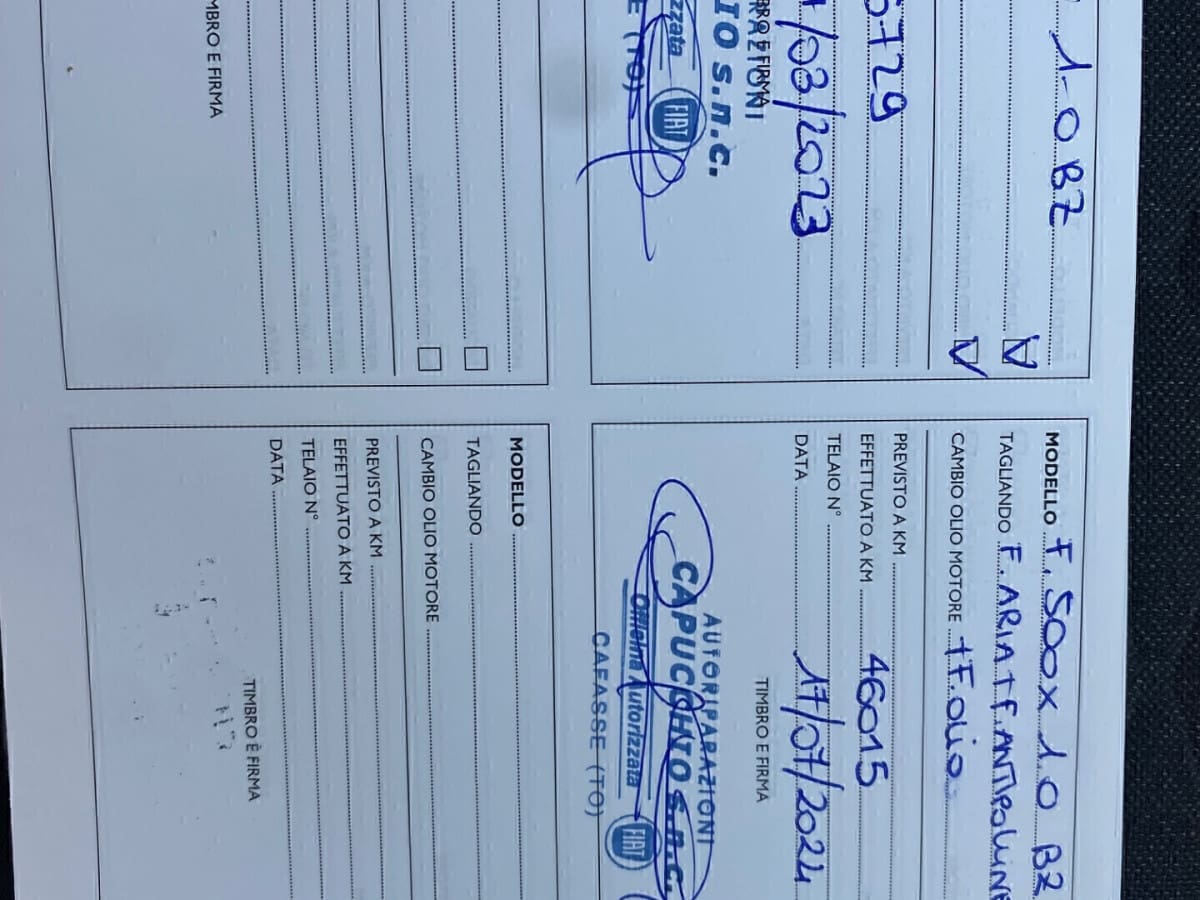 1.0 BZ
6729
/03/2023
BRO E FIRMA
RAZIONI
IO s.n.c.
zzata
FIAT
E (TO)
MODELLO F. 500X 1.0 BZ
TAGLIANDO F. ARIA + F. ANTIPOLLINE
CAMBIO OLIO MOTORE + F. OLIO
PREVISTO A KM
EFFETTUATO A KM 46015
TELAIO N°
DATA 17/07/2024
TIMBRO E FIRMA
AUTORIPARAZIONI
CAPUCCHIO s.n.c.
Officina Autorizzata
FIAT
CAFASSE (TO)
MBRO E FIRMA
MODELLO
TAGLIANDO
CAMBIO OLIO MOTORE
PREVISTO A KM
EFFETTUATO A KM
TELAIO N°
DATA
TIMBRO E FIRMA